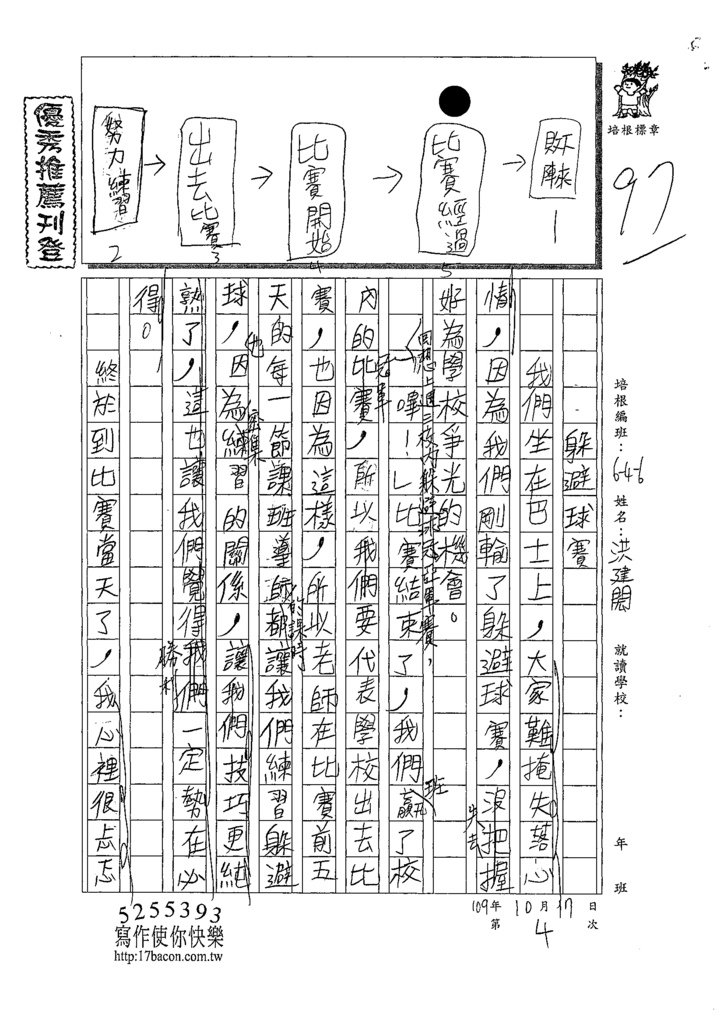 培根標章
97
敗陣
1
比賽經過
5
比賽開始
4
出去比賽
3
努力練習
2
優秀推薦刊登
培根編班：646 姓名：洪建閎 就讀學校： 年 班
109年10月17日
第4次
躲避球賽
我們坐在巴士上，大家難掩失落心
情，因為我們剛輸了躲避球賽，沒把握
失去
好為學校爭光的機會。
回想上週三校內躲避球冠亞軍賽，
「嗶！」比賽結束了，我們贏了校
班
內的比賽，所以我們要代表學校出去比
冠軍
賽，也因為這樣，所以老師在比賽前五
天的每一節課班導師都讓我們練習躲避
的課時
球，因為練習的關係，讓我們技巧更純
他
密集
熟了，這也讓我們覺得我們一定勢在必
勝利
得。
終於到比賽當天了，我心裡很忐忑
5255393
寫作使你快樂
http:17bacon.com.tw